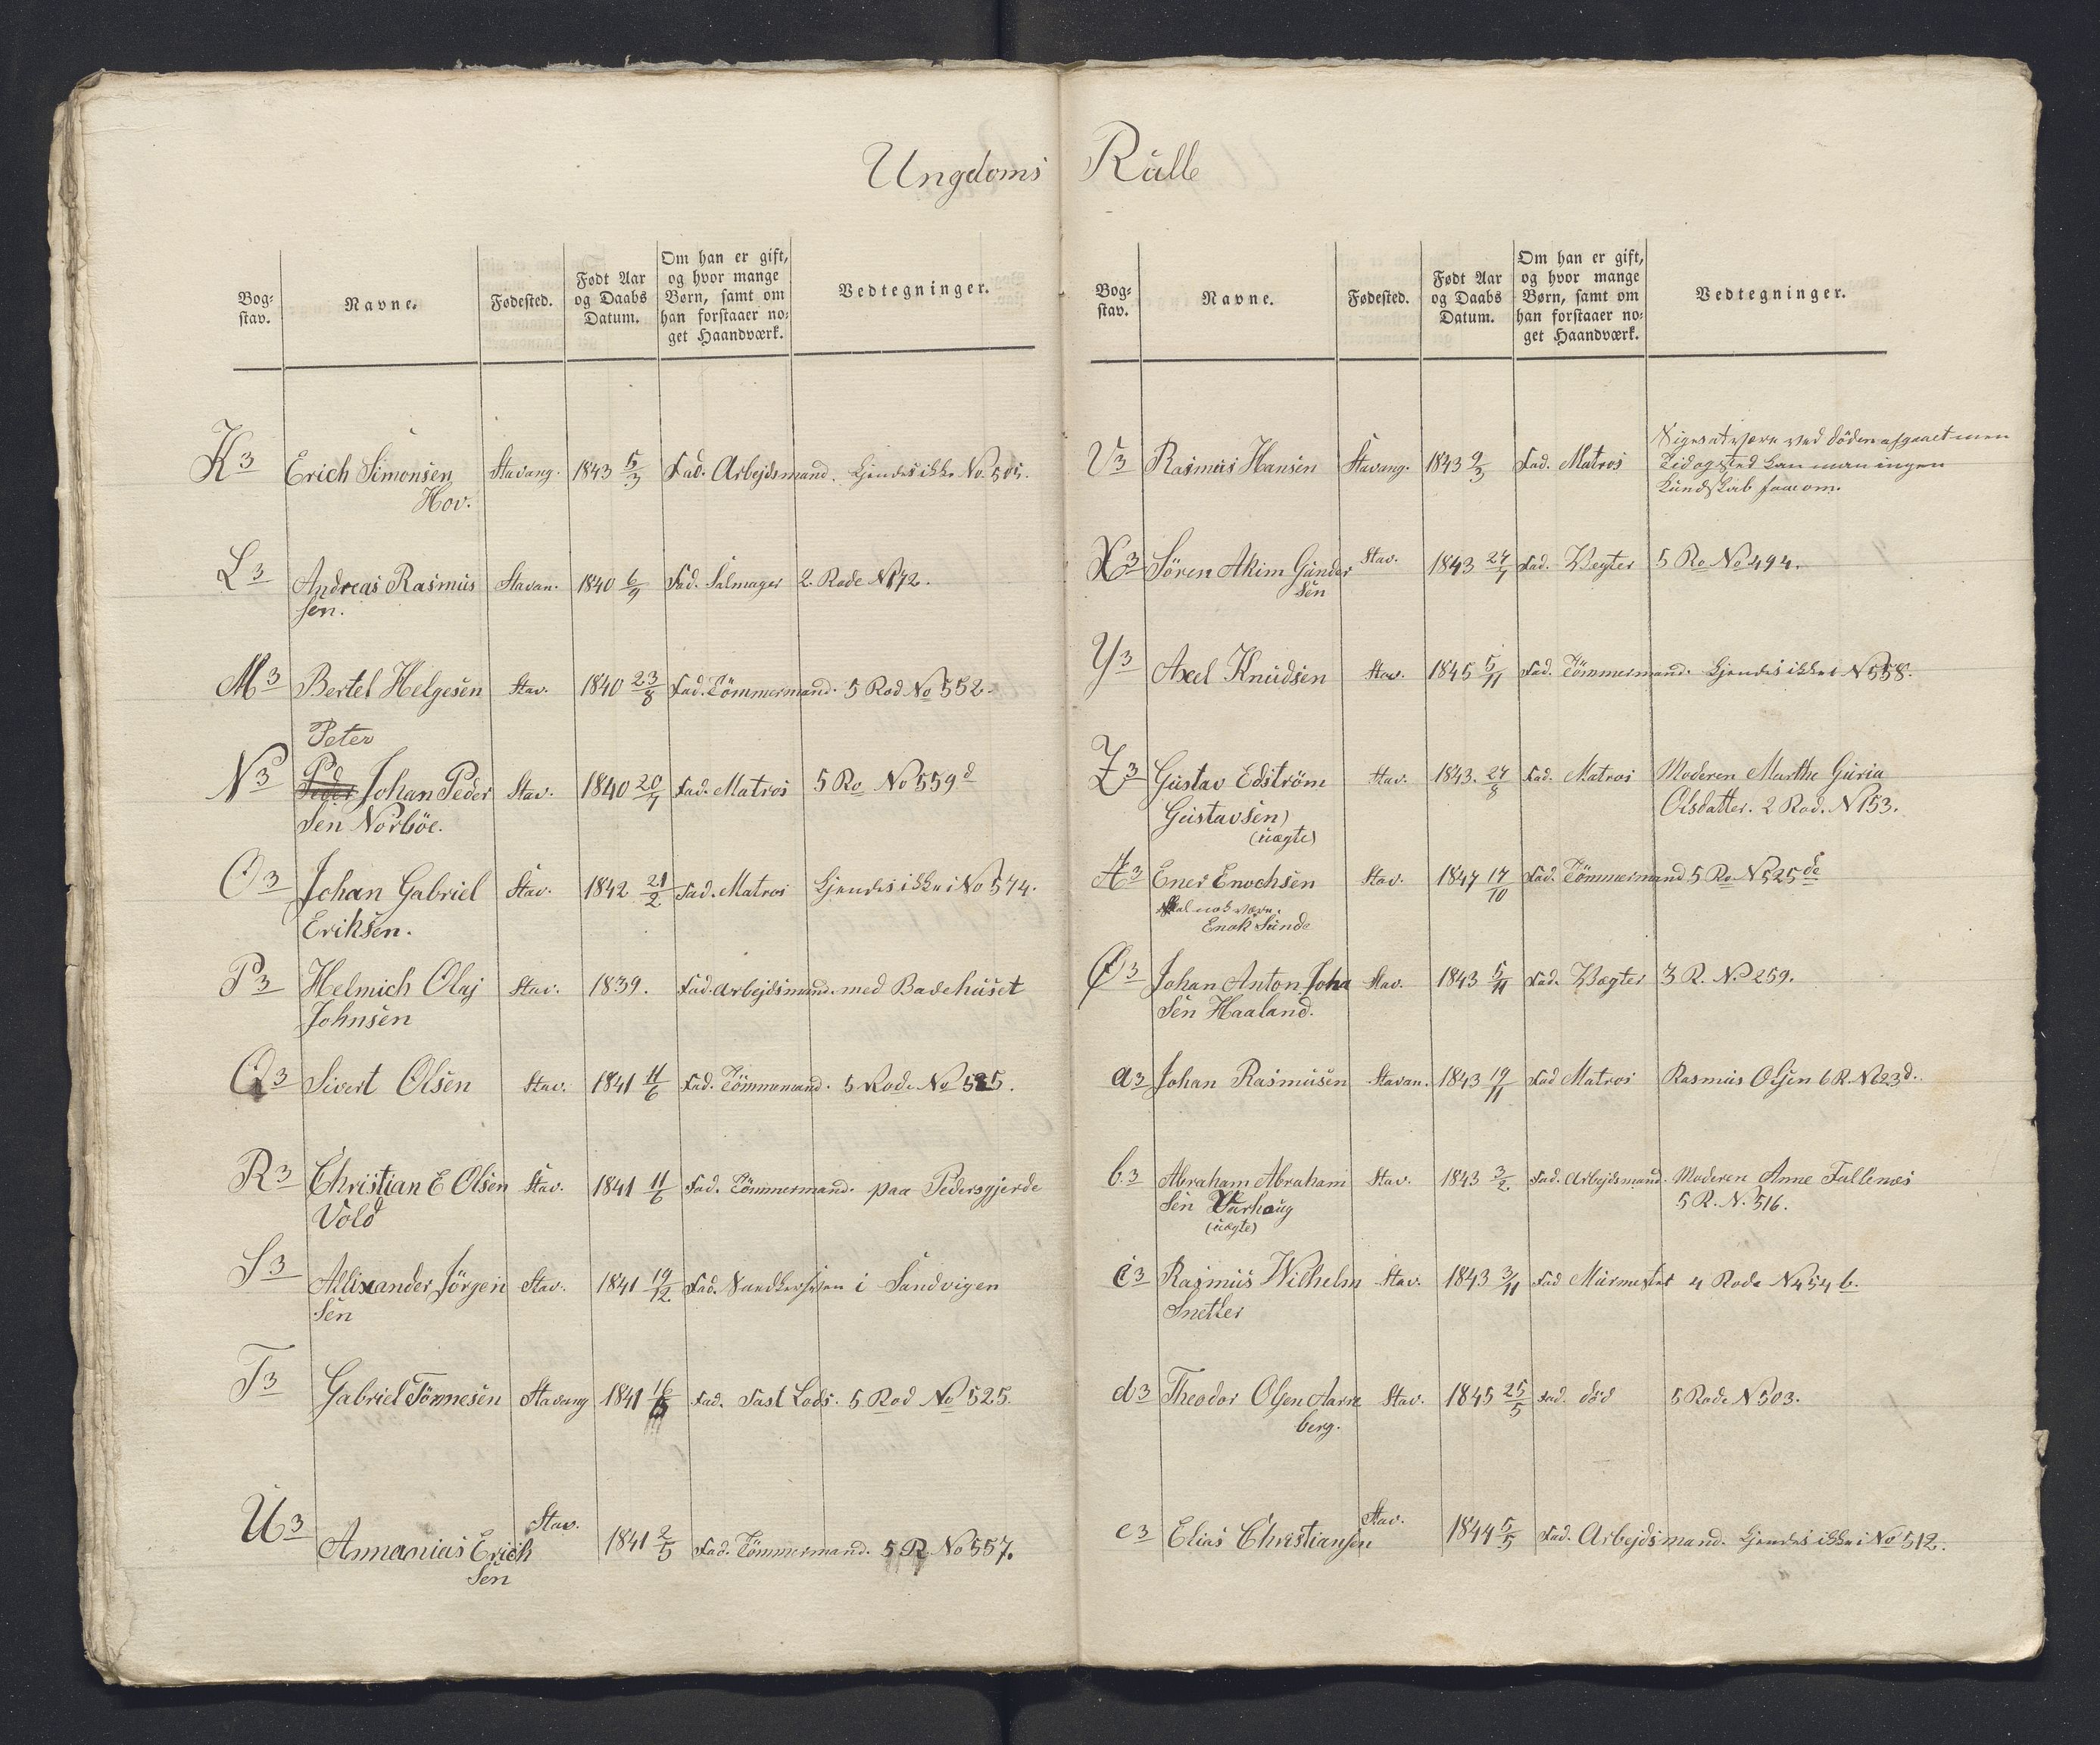 Ungdoms Rulle
Bog-
stav.
Navne.
Fødested.
Født Aar
og Daabs
Datum.
Om han er gift,
og hvor mange
Børn, samt om
han forstaaer no-
get Haandværk.
Vedtegninger.
K3 Erich Simonsen Stavang. 1843 5/3 Fad. Arbejdsmand. Kjendes ikke No. 505.
Hov.
L3 Andreas Rasmus Stavan. 1840 6/9 Fad. Salmager 2. Rode N 172.
sen.
M3 Bertel Helgesen Stav. 1840 23/8 Fad. Tömmermand. 5 Rod No 552.
Peter
N3 Peder Johan Peder Stav. 1840 20/7 Fad. Matros 5 Ro No 559 d
sen Norböe.
O3 Johan Gabriel Stav. 1842 21/2 Fad. Matros Kjendes ikke i No 574.
Eriksen.
P3 Helmich Olaj Stav. 1839. Fad. Arbejdsmand. med Badehuset
Johnsen
Q3 Sivert Olsen Stav. 1841 11/6 Fad. Tömmermand. 5 Rode No 525.
R3 Christian E Olsen Stav. 1841 11/6 Fad. Tömmermand. paa Pedersgjerde
Vold
S3 Allixander Jörgen Stav. 1841 19/12 Fad. i Sandvigen
sen
T3 Gabriel Tönnesen Stavang 1841 Fad. Fast Lods. 5 Rod No 525.
U3 Annanias Erich Stav. 1841 2/5 Fad. Tömmermand. 5 R. No 557.
sen
Bog-
stav.
Navne.
Fødested.
Født Aar
og Daabs
Datum.
Om han er gift,
og hvor mange
Børn, samt om
han forstaaer no-
get Haandværk.
Vedtegninger.
V3 Rasmus Hansen Stavang. 1843 9/3 Fad. Matros Siges at være ved döden afgaaet men
Tid og sted kan man ingen
Kundskab faae om.
X3 Sören Akim Gunder Stav. 1843 27/7 Fad. Vægter 5 Ro No 494.
sen
Y3 Axel Knudsen Stav. 1845 5/11 Fad. Tömmermand. Kjendes ikke i N 558.
Z3 Gustav Edström Stav. 1843. 27/8 Fad. Matros Moderen Marthe Guria
Gustavsen) Olsdatter. 2 Rod. N 153.
(uægte)
Æ3 Ener Enochsen Stav. 1847 17/10 Fad. Tömmermand 5 Ro N 525 de
Skal nok være.
Enok Sunde
Ø3 Johan Anton Joha Stav. 1843 5/11 Fad. Vægter 3 R. No 259.
sen Haaland.
a3 Johan Rasmusen Stavan. 1843 19/11 Fad Matros Rasmus Olsen 6 R. No 23 d.
b3 Abraham Abraham Stav. 1843 3/2 Fad. Arbejdsmand. Moderen Anne Tallenæs
sen Varhoug 5 R. N. 516.
(uægte)
c3 Rasmus Wilhelm Stav. 1843 3/11 Fad Murmester 4 Rode N 454 b.
Snetler
d3 Theodor Olsen Aarre Stav. 1845 25/5 Fad. död 5 Rode N 503.
berg.
e3 Elias Christiansen Stav. 1844 5/5 Fad. Arbejdsmand. Kjendes ikke i No 512.